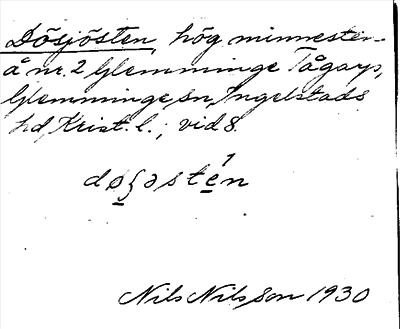 Dösjösten, hög minnesten
å nr. 2 Glemminge Tågarps,
Glemminge sn, Ingelstads
hd, Krist. l.; vid 8.
Nils Nilsson 1930